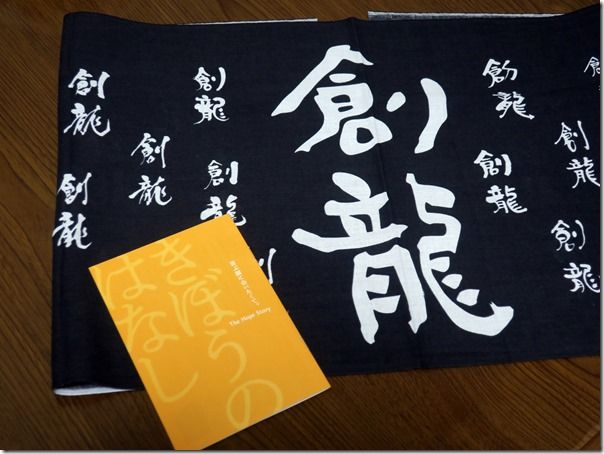 創龍
創龍
創龍
創龍
創龍
創龍
創龍
創龍
創龍
創龍
きぼうの
はなし
The Hope Story